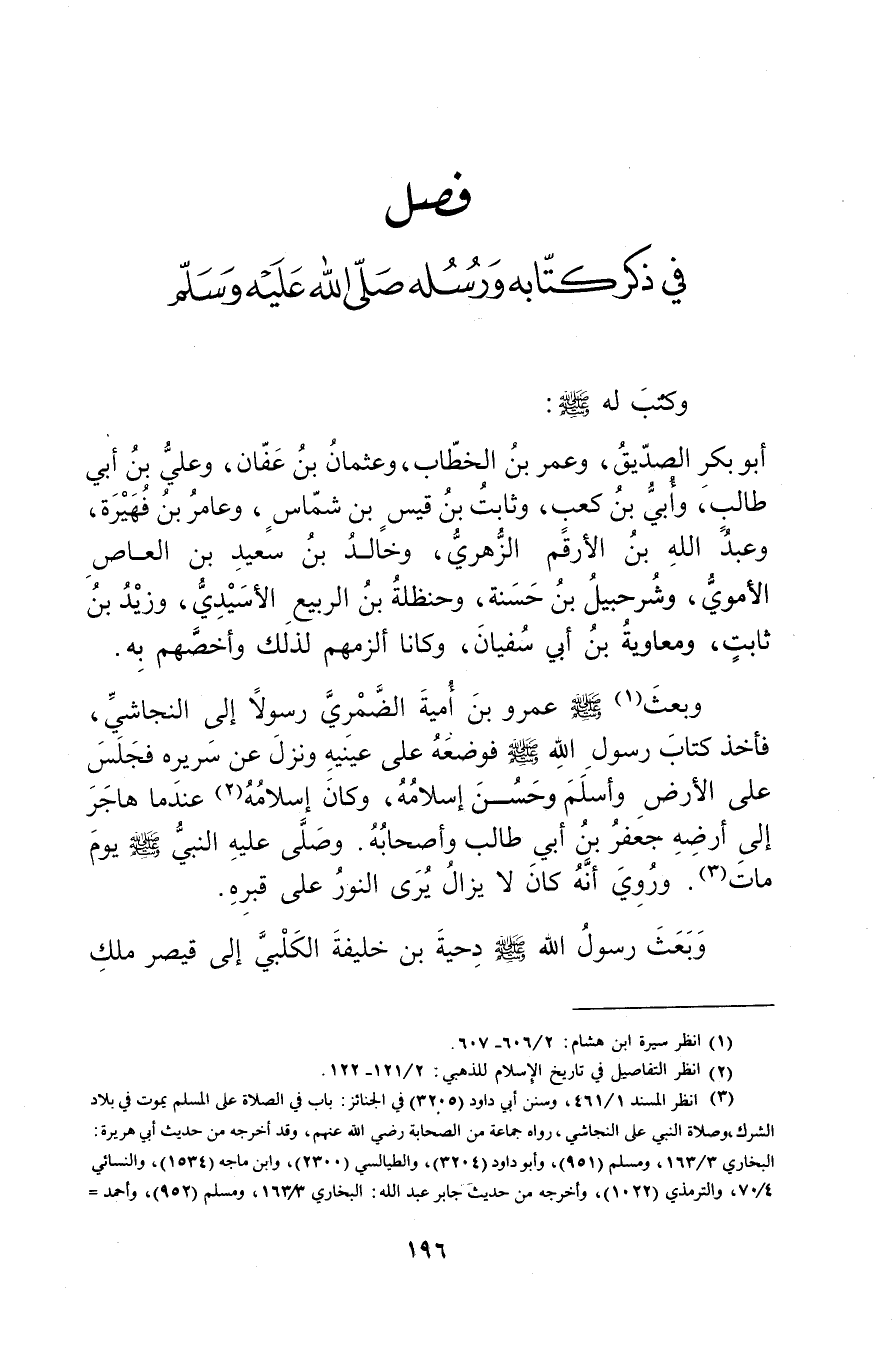 فصل
في ذكر كتّابه وَرُسُله صَلّى الله عَلَيْه وَسَلّم
وكتَبَ له ﷺ :
أبو بكرِ الصدّيقُ، وعمر بنُ الخطّاب، وعثمانُ بنُ عَفّان، وعليُّ بنُ أبي
طالبٍ، وأُبيُّ بنُ كعبٍ، وثابتُ بنُ قيسٍ بن شمّاسٍ، وعامرُ بنُ فُهَيْرَة،
وعبدُ اللهِ بنُ الأرقم الزُّهريُّ، وخالدُ بنُ سعيدِ بن العاصِ
الأمويُّ، وشُرحبيلُ بنُ حَسَنة، وحنظلةُ بنُ الربيعِ الأسَيْدِيُّ، وزيْدُ بنُ
ثابتٍ، ومعاويةُ بنُ أبي سُفيانَ، وكانا ألزمهم لذلك وأخصَّهم بِه.
وبعثَ(١) ﷺ عمرو بنَ أُميةَ الضَّمْريَّ رسولاً إلى النجاشيِّ،
فأخذ كتابَ رسولِ اللهِ ﷺ فوضعَهُ على عينَيهِ ونزلَ عن سَريره فجَلَسَ
على الأرضِ وأسلَمَ وحَسُنَ إسلامُهُ، وكانَ إسلامُهُ(٢) عندَما هاجَرَ
إلى أرضِهِ جعفرُ بنُ أبي طالب وأصحابُهُ. وصَلَّى عليهِ النبيُّ ﷺ يومَ
ماتَ(٣). ورُوِيَ أنَّهُ كانَ لا يزالُ يُرَى النورُ على قبرِهِ.
وَبَعَثَ رسولُ الله ﷺ دِحيةَ بن خليفةَ الكَلْبيَّ إلى قيصر ملكِ
(١) انظر سيرة ابن هشام: ٦٠٦/٢ـ ٦٠٧.
(٢) انظر التفاصيل في تاريخ الإسلام للذهبي: ١٢١/٢ـ ١٢٢.
(٣) انظر المسند ٤٦١/١، وسنن أبي داود (٣٢٠٥) في الجنائز: باب في الصلاة على المسلم يموت في بلاد
الشرك، وصلاة النبي على النجاشي، رواه جماعة من الصحابة رضي الله عنهم، وقد أخرجه من حديث أبي هريرة:
البخاري ١٦٣/٣، ومسلم (٩٥١)، وأبو داود (٣٢٠٤)، والطيالسي (٢٣٠٠)، وابن ماجه (١٥٣٤)، والنسائي
٧٠/٤، والترمذي (١٠٢٢)، وأخرجه من حديث جابر عبد الله: البخاري ١٦٣/٣، ومسلم (٩٥٢)، وأحمد =
١٩٦